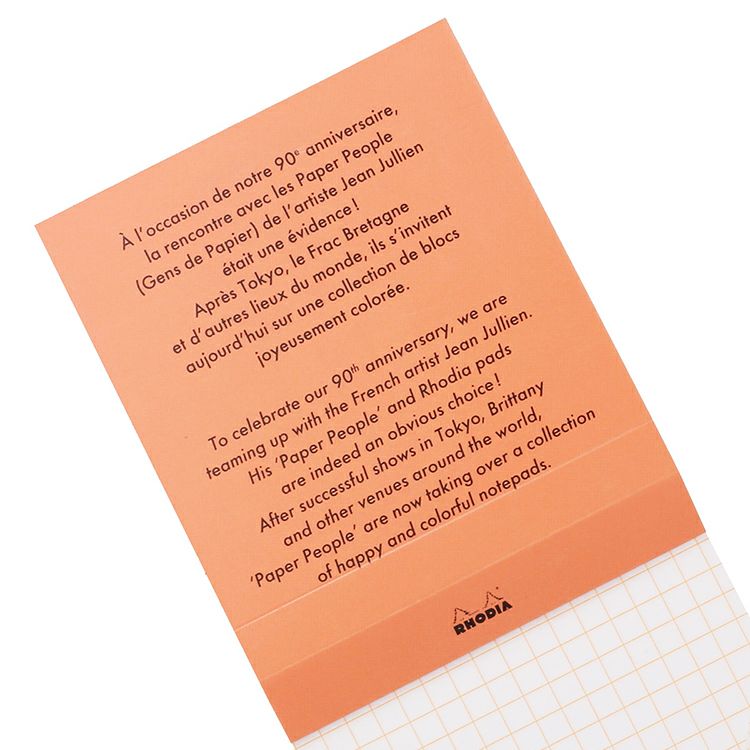 À l'occasion de notre 90e anniversaire,
la rencontre avec les Paper People
(Gens de Papier) de l'artiste Jean Jullien
était une évidence !
Après Tokyo, le Frac Bretagne
et d'autres lieux du monde, ils s'invitent
aujourd'hui sur une collection de blocs
joyeusement colorée.
To celebrate our 90th anniversary, we are
teaming up with the French artist Jean Jullien.
His 'Paper People' and Rhodia pads
are indeed an obvious choice !
After successful shows in Tokyo, Brittany
and other venues around the world,
'Paper People' are now taking over a collection
of happy and colorful notepads.
RHODIA